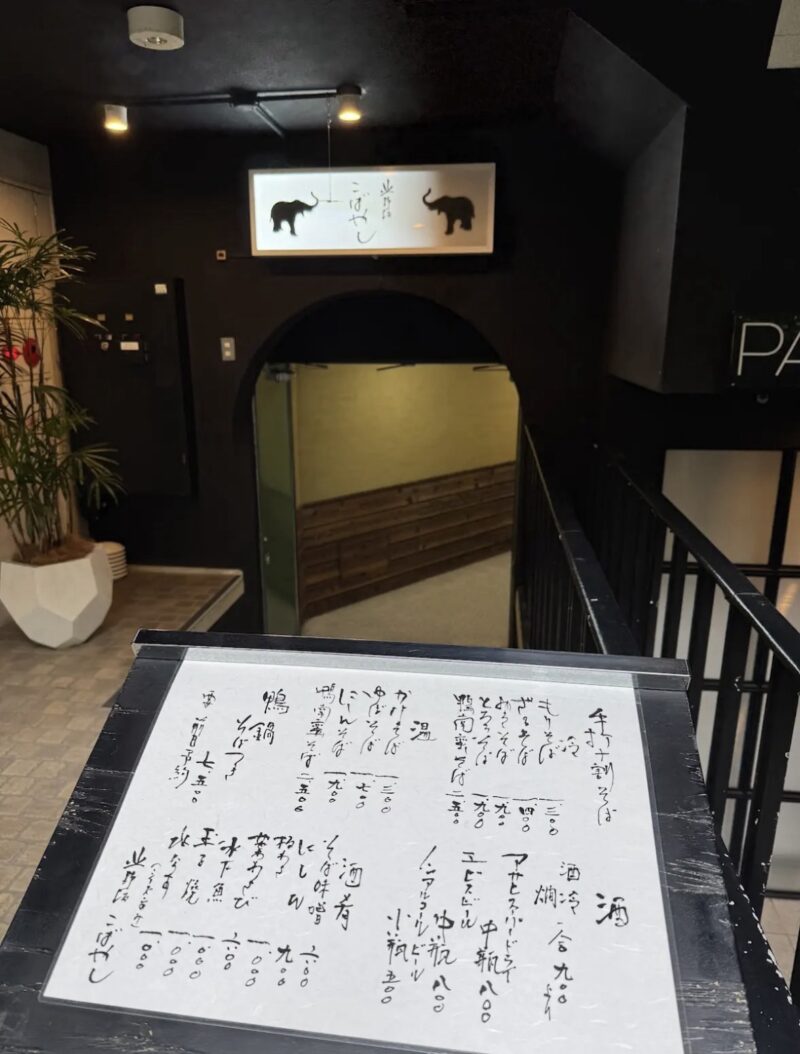 こばやし
PA
手打
割そば
冷
もりそば 一.三〇〇
ざるそば 一.四〇〇
そば 一.九〇〇
とろろそば 一.九〇〇
鴨南蛮そば 二.五〇〇
温
かけそば 一.三〇〇
ゆばそば 一.七〇〇
にしんそば 一.九〇〇
鴨南蛮そば 二.五〇〇
鴨鍋
そばつき
七.五〇〇
前予約
酒
酒 冷 燗 一合 九〇〇より
アサヒスーパードライ
中瓶 八〇〇
エビスビール
中瓶 八〇〇
ノンアルコールビール
小瓶 五〇〇
酒肴
そば味噌 六〇〇
にしん 九〇〇
板わさ 一.〇〇〇
葉わさび 六〇〇
氷下魚 一.〇〇〇
玉子焼 一.〇〇〇
水なす 一.〇〇〇
こばやし